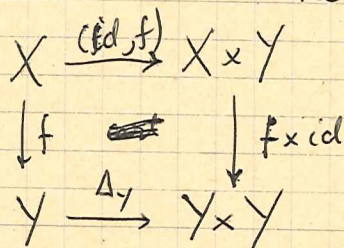 (id, f)
X → X × Y
↓ f ↓ f × id
Δ_Y
Y → Y × Y